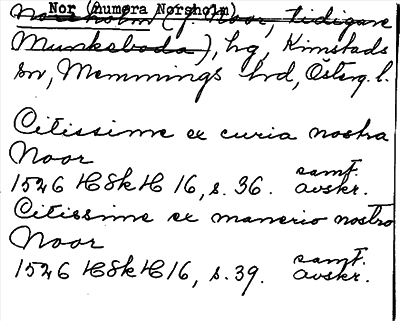 Nor (numera Norsholm)
Norsholm (f. Noor, tidigare
Munkeboda), hg, Kimstads
sn, Memmings hd, Österg. l.
Citissime ex curia nostra
Noor
1526 HSkH 16, s. 36. samt. avskr.
Citissime ex manerio nostro
Noor
1526 HSkH 16, s. 39. samt. avskr.